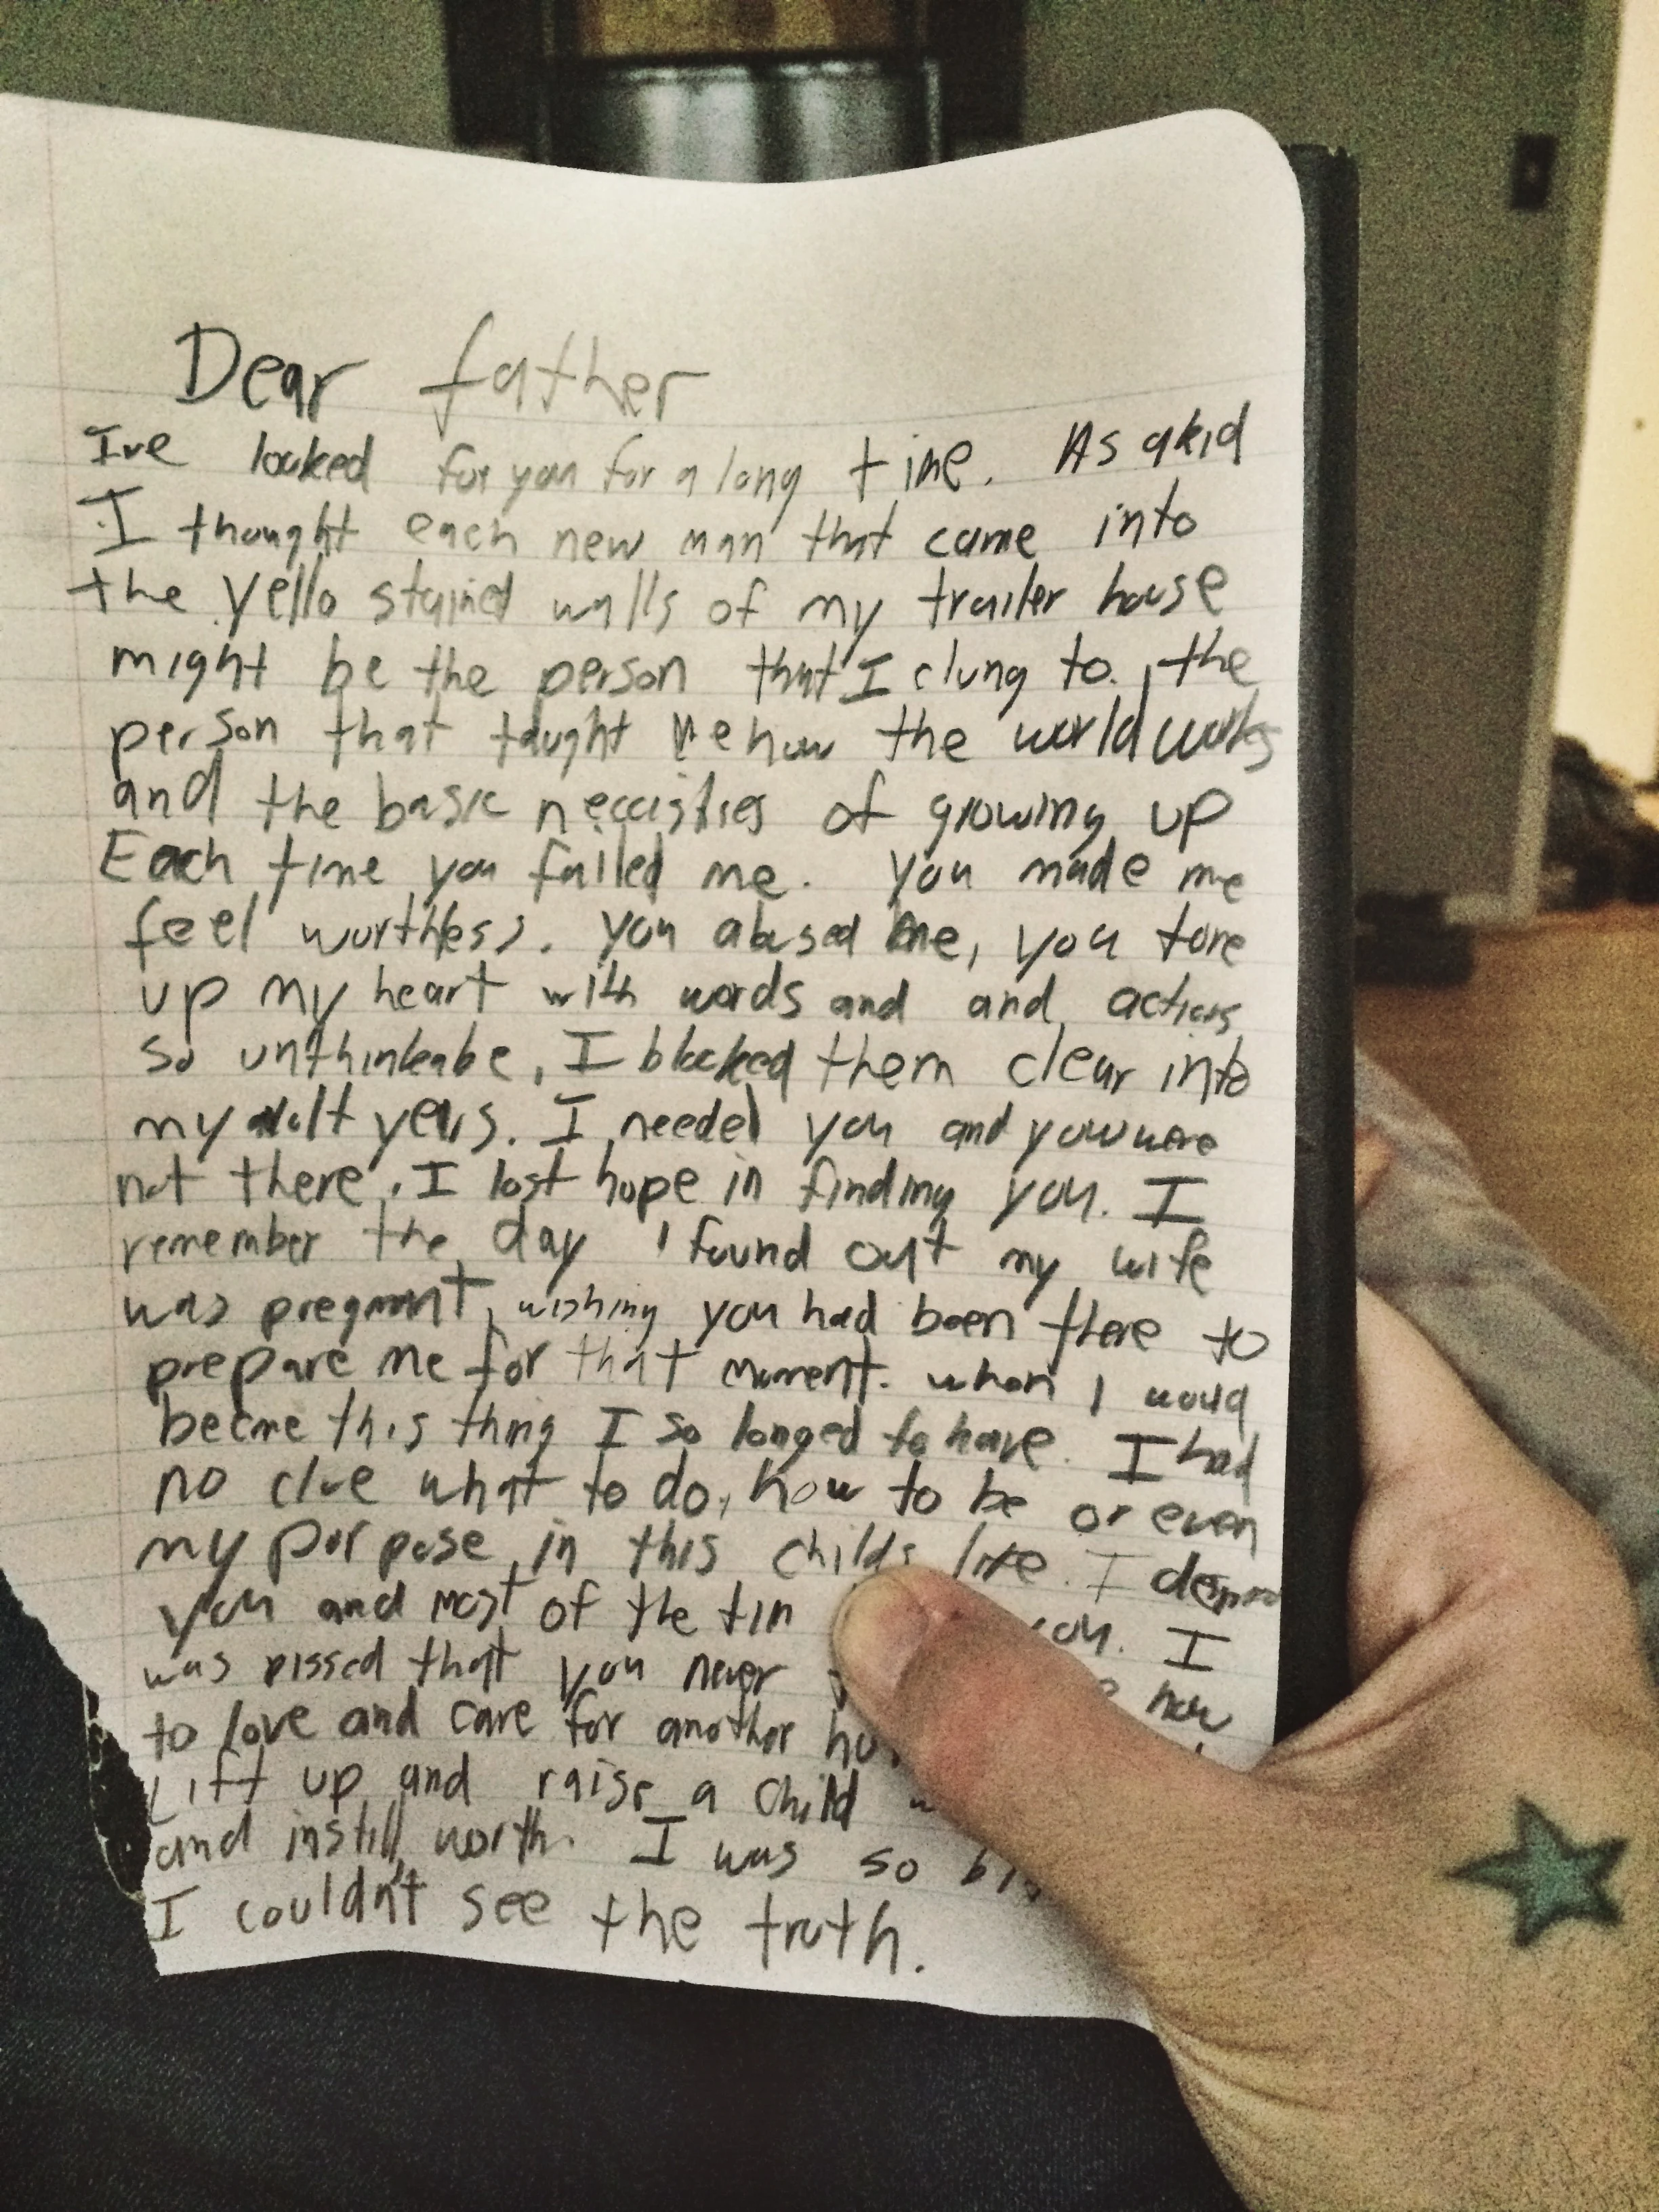 Dear father
Ive looked for you for a long time. As a kid
I thought each new man that came into
the yello stained walls of my trailer house
might be the person that I clung to, the
person that taught me how the world works
and the basic
of growing up
Each time you failed me. You made me
feel worthless. you abused me, you tore
up my heart with words and and actions
so unthinkabe, I blocked them clear into
my adult years. I needed you and you were
not there. I lost hope in finding you. I
remember the day I found out my wife
was pregnant, wishing you had been there to
prepare me for that moment. when I would
become this thing I so longed to have. I had
no clue what to do, how to be or even
my porpose in this childs life. I
you and most of the you. I
was pissed that you never how
to love and care for another
Lift up and raise a child
and instill worth. I was so
I couldn't see the truth.